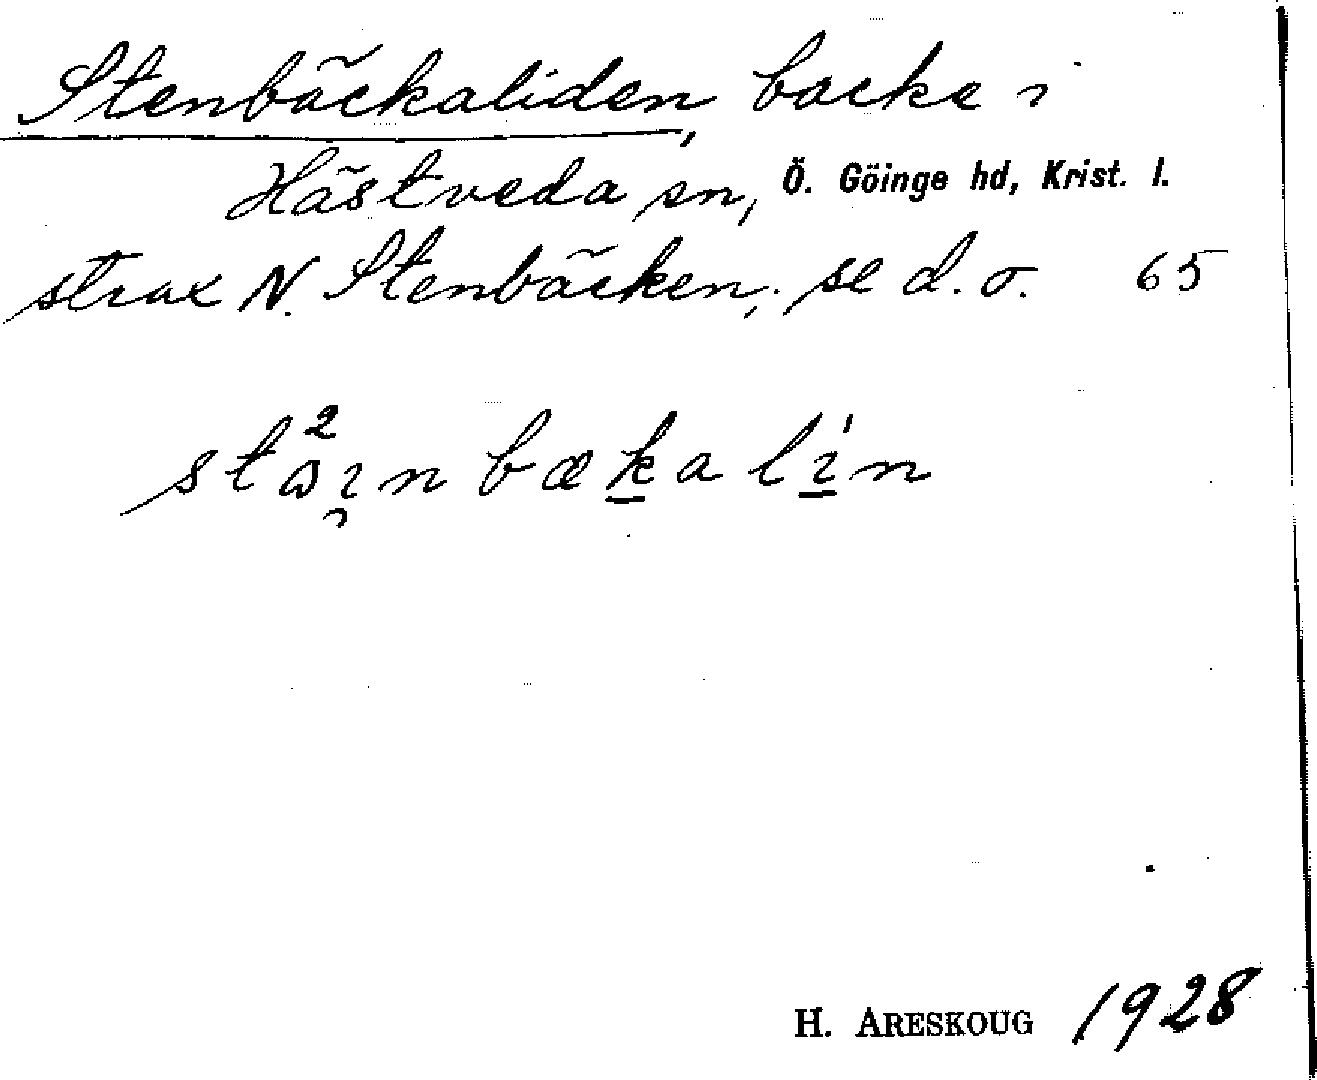 Stenbäckaliden, backe i
Hästveda sn, Ö. Göinge hd, Krist. l.
strax N. Stenbäcken, se d. o. 65
H. ARESKOUG 1928